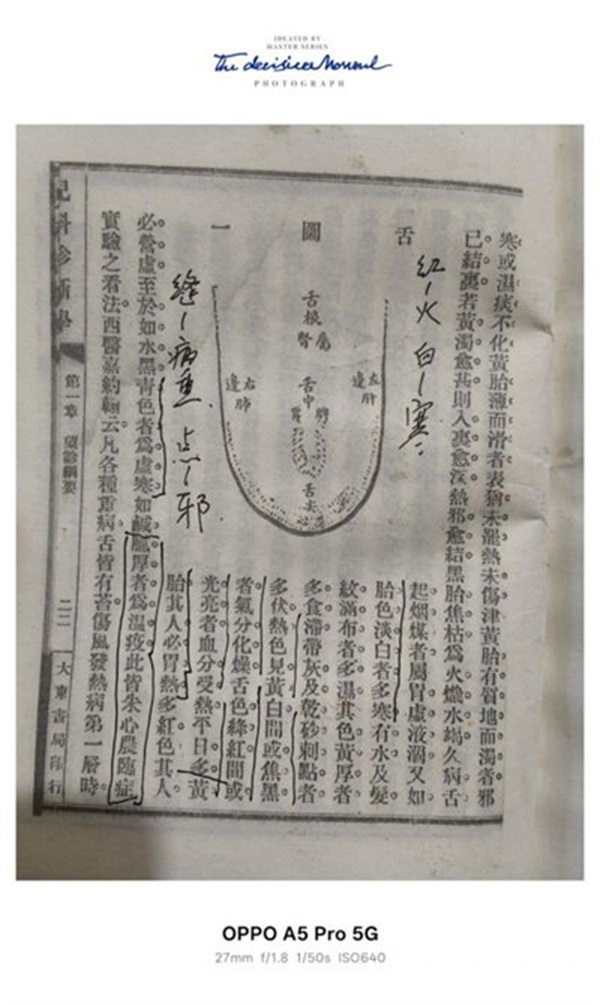 IDEATED BY
MASTER SERIES
The decisive Moment
PHOTOGRAPH
寒或濕痰不化黃胎薄而滑者表猶未罷熱未傷津黃胎有質地而濁者邪
已結裏若黃濁愈甚則入裏愈深熱邪愈結黑胎焦枯爲火燬水竭久病舌
起烟煤者屬胃虛液涸又如
胎色淡白者多寒有水及髮
紋滿布者多濕其色黃厚者
多食滯帶灰及乾砂刺點者
多伏熱色見黃白間或焦黑
省氣分化燥舌色絳紅間或
光亮者血分受熱平日多黃
胎其人必胃熱多紅色其人
舌圖一
舌根屬腎
左邊肝
舌中
右邊肺
舌尖
红－火 白－寒
缝－病重 点－邪
必營虛至於如水黑青色者爲虛寒如鹹厚者爲溫疫此皆朱心農臨症
實驗之看法西醫嘉約翰云凡各種重病舌皆有苔傷風發熱病第一層時
兒科診斷學
第一章 望診綱要
二二
大東書局印行
OPPO A5 Pro 5G
27mm f/1.8 1/50s ISO640